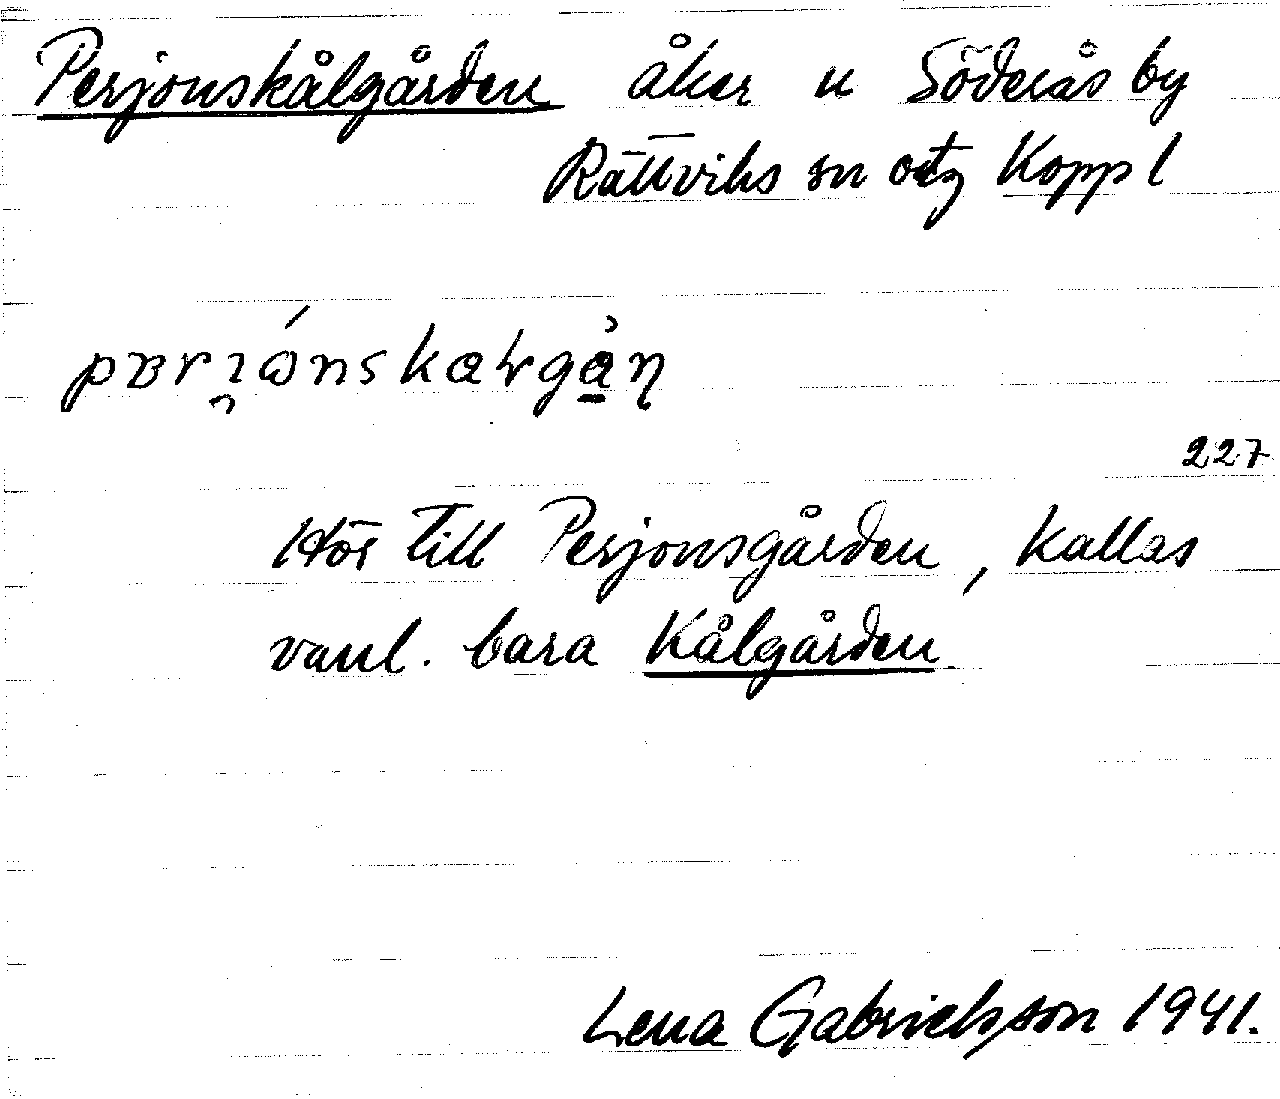 Perjonskålgården åker n Söderås by
Rättviks sn o tg Kopp l
227
Hör till Perjonsgården, kallas
vanl. bara Kålgården.
Lena Gabrielsson 1941.